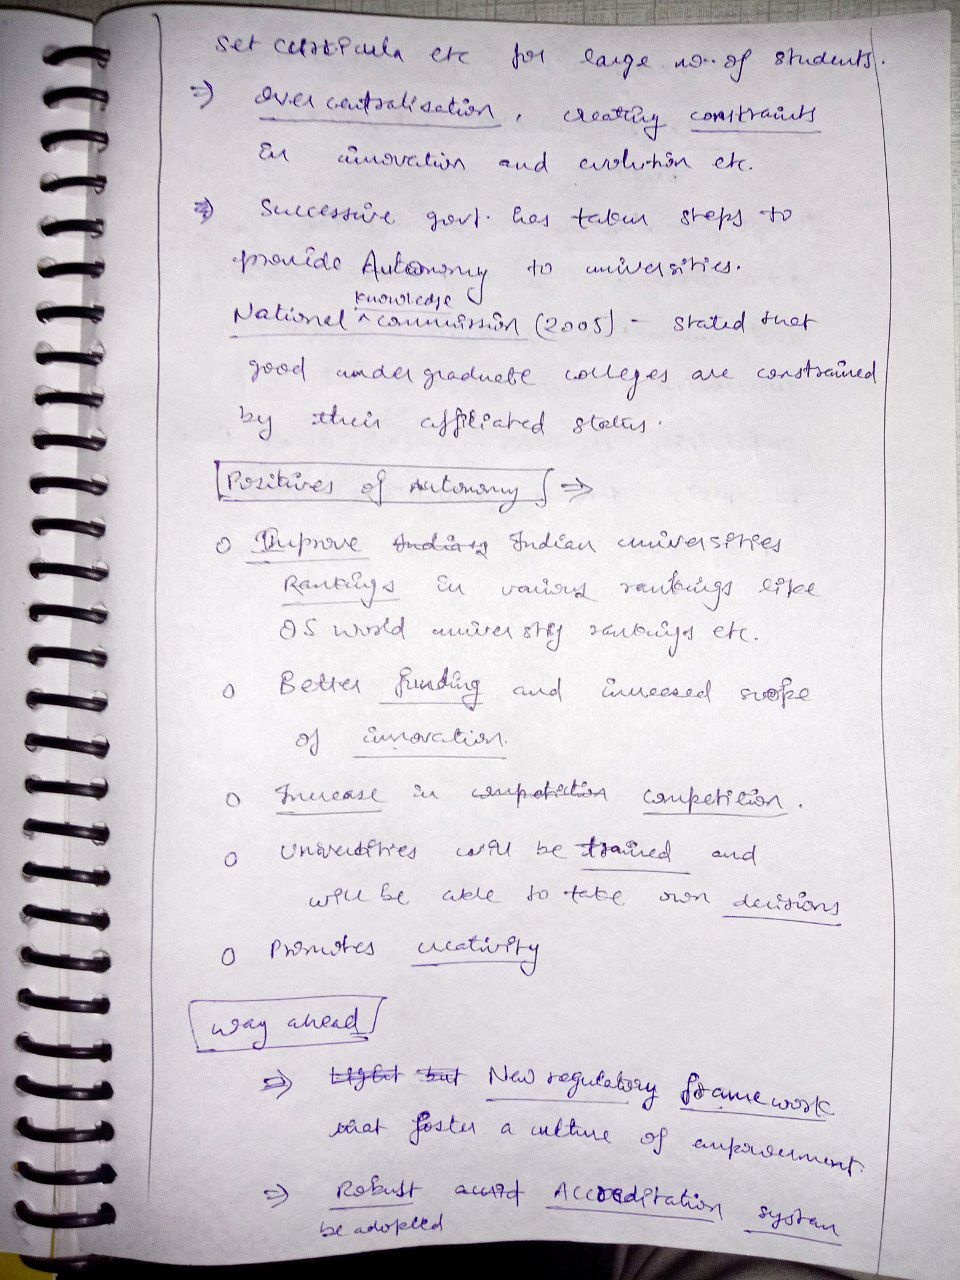 set curricula etc for large no. of students.
⇒ Over centralisation, creating constraints
in innovation and evolution etc.
⇒ Successive govt. has taken steps to
provide Autonomy to universities.
knowledge
National ^ commission (2005) - stated that
good undergraduate colleges are constrained
by their affiliated status.
Positives of Autonomy ⇒
o Improve Indian universities
Rankings in various rankings like
QS world university rankings etc.
o Better funding and increased scope
of innovation.
o Increase in competition.
o Universities will be trained and
will be able to take own decisions
o Promotes creativity
Way ahead
⇒ Light but New regulatory framework
that foster a culture of
⇒ Robust Accreditation system
be adopted